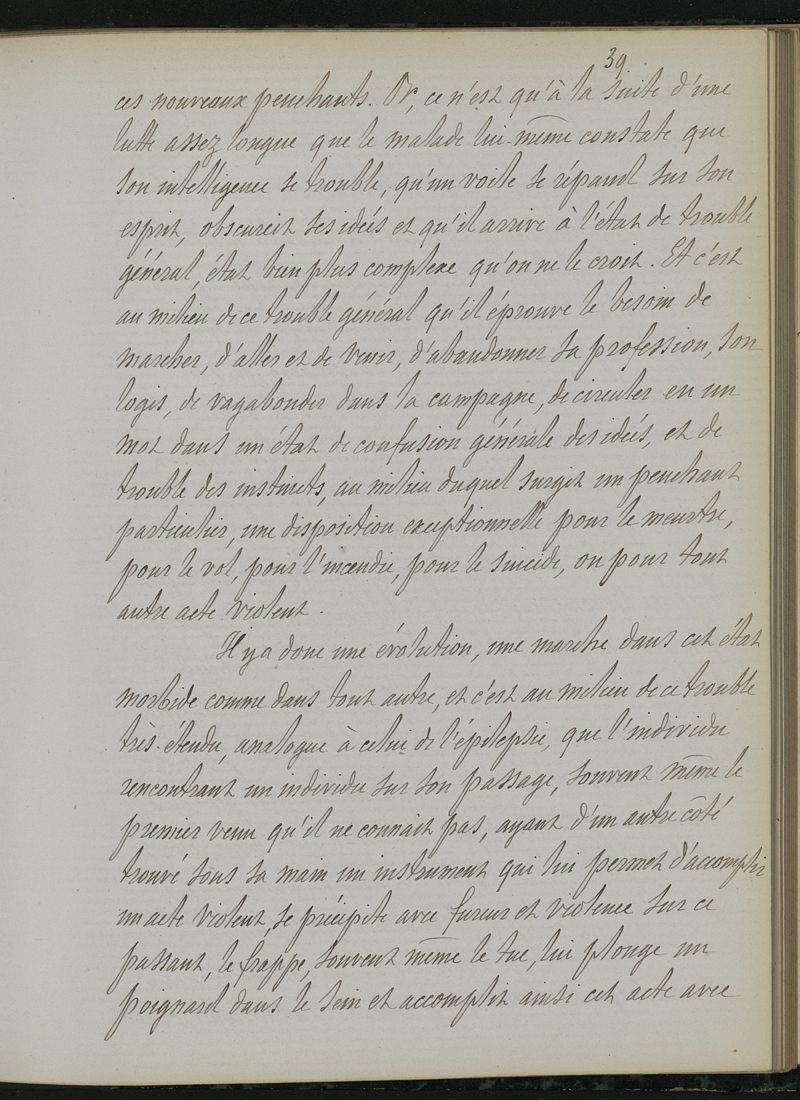 39
ces nouveaux penchants. Or, ce n'est qu'à la suite d'une
lutte assez longue que le malade lui-même constate que
son intelligence se trouble, qu'un voile se répand sur son
esprit, obscurcit ses idées et qu'il arrive à l'état de trouble
général, état bien plus complexe qu'on ne le croit. Et c'est
au milieu de ce trouble général qu'il éprouve le besoin de
marcher, d'aller et de venir, d'abandonner sa profession, son
logis, de vagabonder dans la campagne, de circuler en un
mot dans un état de confusion générale des idées, et de
trouble des instincts, au milieu duquel surgit un penchant
particulier, une disposition exceptionnelle pour le meurtre,
pour le vol, pour l'incendie, pour le suicide, ou pour tout
autre acte violent.
Il y a donc une évolution, une marche dans cet état
morbide comme dans tout autre, et c'est au milieu de ce trouble
très-étendu, analogue à celui de l'épilepsie, que l'individu
rencontrant un individu sur son passage, souvent même le
premier venu qu'il ne connait pas, ayant d'un autre côté
trouvé sous sa main un instrument qui lui permet d'accomplir
un acte violent, se précipite avec fureur et violence sur ce
passant, le frappe, souvent même le tue, lui plonge un
poignard dans le sein et accomplit ainsi cet acte avec